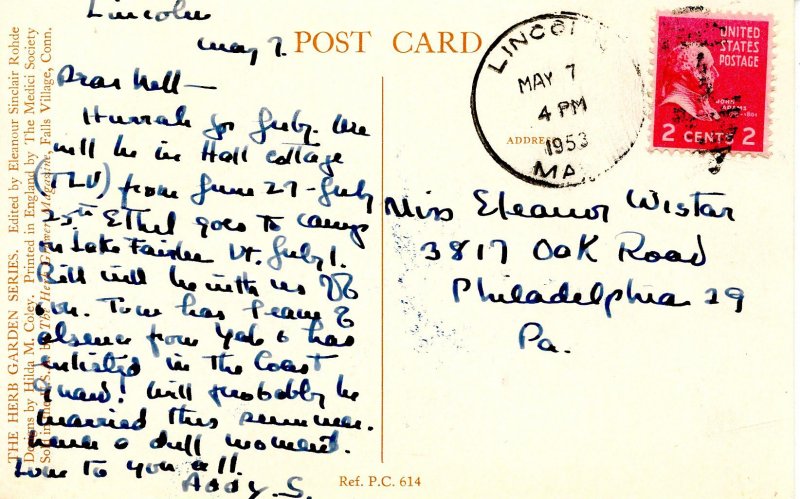 Lincoln
May 7.
Dear Nell —
Hurrah for July. We
will be in Hall cottage
(TLV) from June 27 - July
25th Ethel goes to camp
on Lake Fairlee Vt. July 1.
Bill will be with us
on. Tom has leave of
absence from Yale & has
enlisted in the Coast
Guard! Will probably be
married this summer.
Never a dull moment.
Love to you all.
Addy. S.
POST CARD
ADDRESS
LINCOLN
MAY 7
4 PM
1953
UNITED
STATES
POSTAGE
JOHN
ADAMS
2 CENTS 2
Miss Eleanor Wistar
3817 Oak Road
Philadelphia 29
Pa.
THE HERB GARDEN SERIES. Edited by Eleanour Sinclair Rohde
Designs by Hilda M. Coley. Printed in England by The Medici Society
Sold in the U.S.A. by The Herb Grower Magazine, Falls Village, Conn.
Ref. P.C. 614